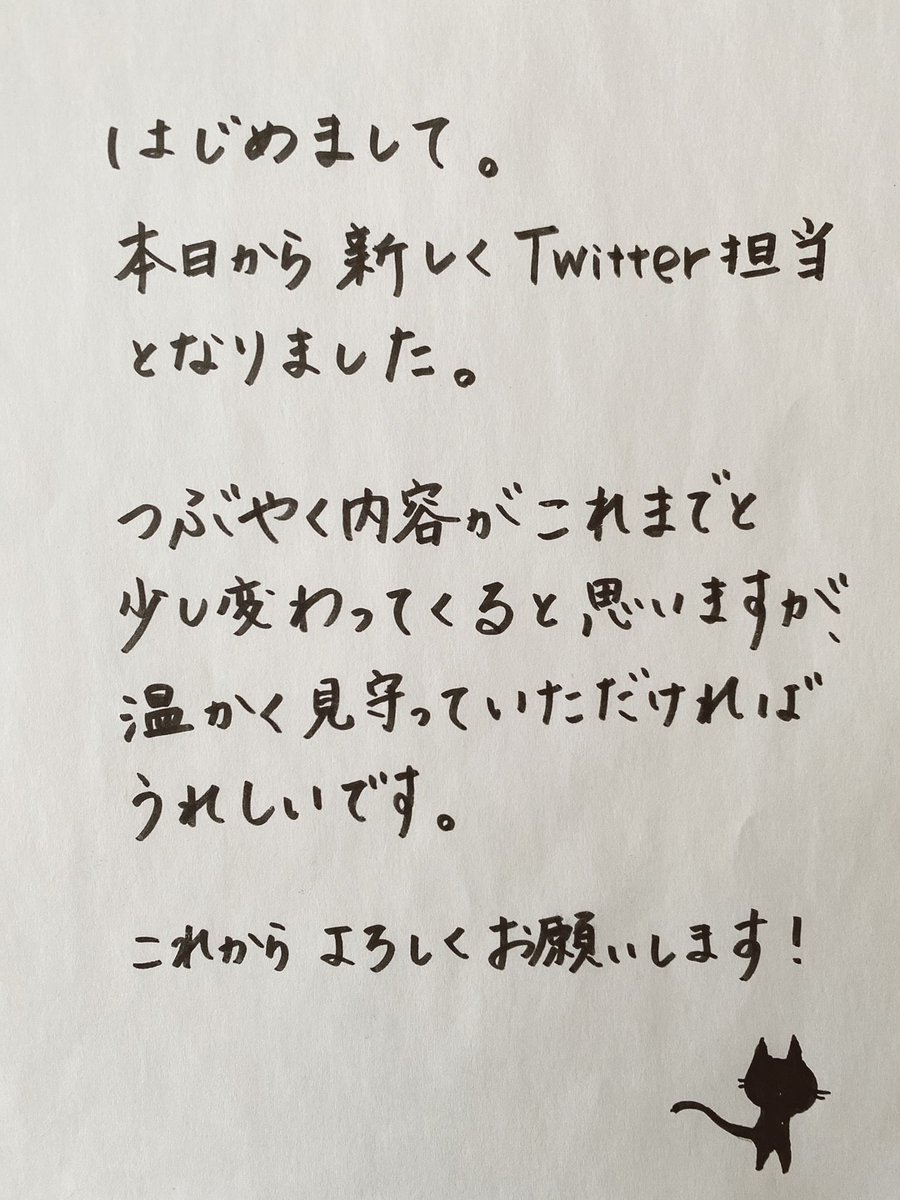 はじめまして。
本日から新しくTwitter担当
となりました。
つぶやく内容がこれまでと
少し変わってくると思いますが、
温かく見守っていただければ
うれしいです。
これからよろしくお願いします!